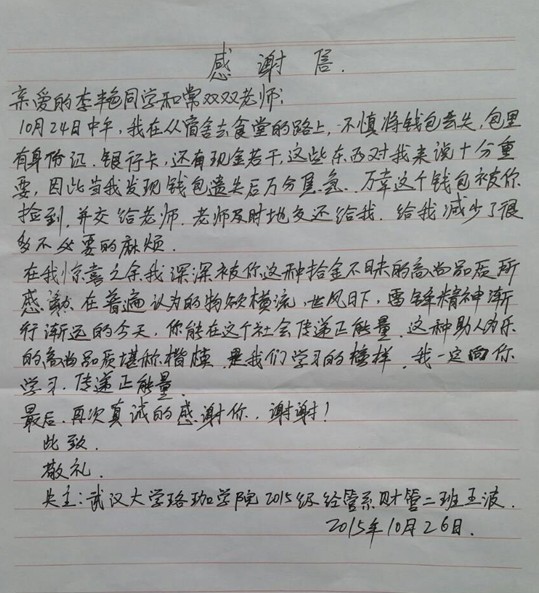 感谢信.
亲爱的李艳同学和常双双老师:
10月24日中午,我在从宿舍去食堂的路上,不慎将钱包丢失,包里
有身份证、银行卡,还有现金若干,这些东西对我来说十分重
要,因此当我发现钱包遗失后万分焦急.万幸这个钱包被你
捡到,并交给老师.老师及时地交还给我.给我减少了很
多不必要的麻烦.
在我惊喜之余我深深被你这种拾金不昧的高尚品质所
感动.在普遍认为的物欲横流,世风日下,雷锋精神渐
行渐远的今天,你能在这个社会传递正能量.这种助人为乐
的高尚品质堪称楷模.是我们学习的榜样.我一定向你
学习.传递正能量.
最后.再次真诚的感谢你.谢谢!
此致.
敬礼.
失主:武汉大学珞珈学院2015级经管系财管二班王波.
2015年10月26日.